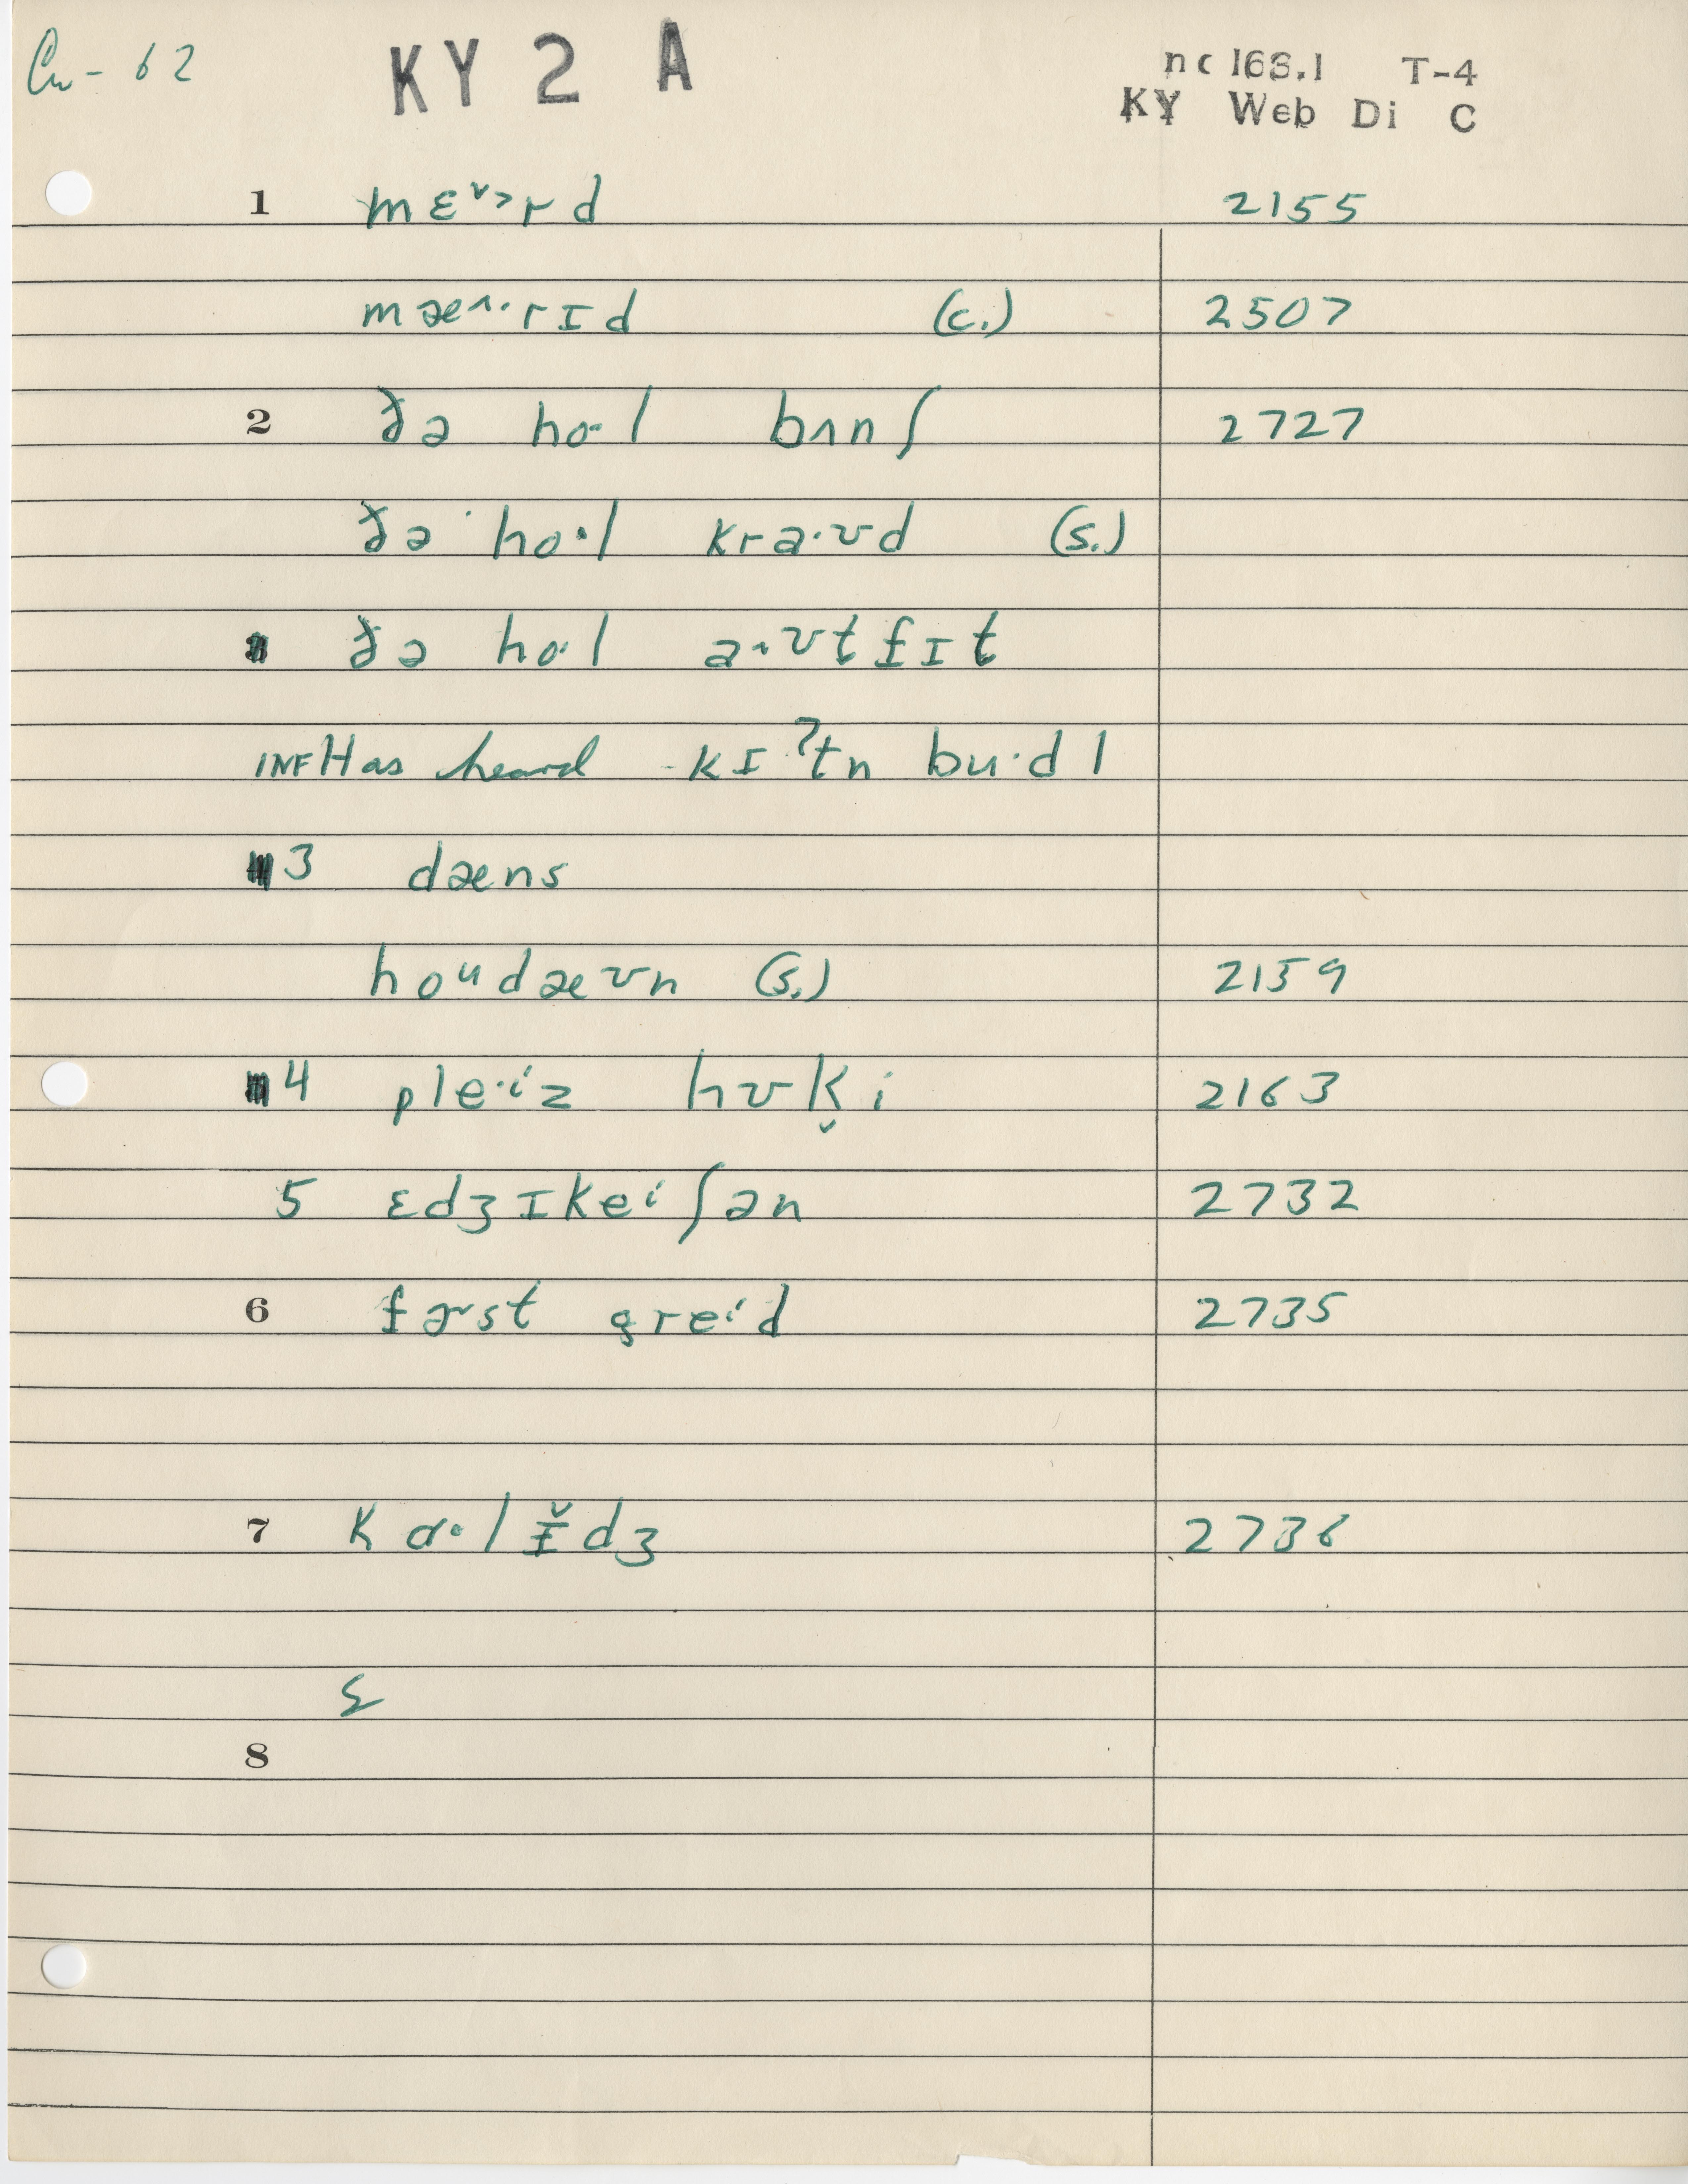 Cw-62 KY 2 A nc 163.1 T-4
KY Web Di C
1 mɛ˅˃rd 2155
mæ˄·rɪd (c.) 2507
2 ðə ho·l bʌnʃ 2727
ðə ho·l kra·ʊd (s.)
ðə ho·l a˄·ʊtfɪt
INF Has heard kɪʔtn bu·dl
3 dæns
hoᵘdæʊn (s.) 2159
4 ple·ⁱz hʊk̬i 2163
5 ɛdʒɪkeⁱʃən 2732
6 fɚst greⁱd 2735
7 kɑ·lɪ̵̌dʒ 2736
8